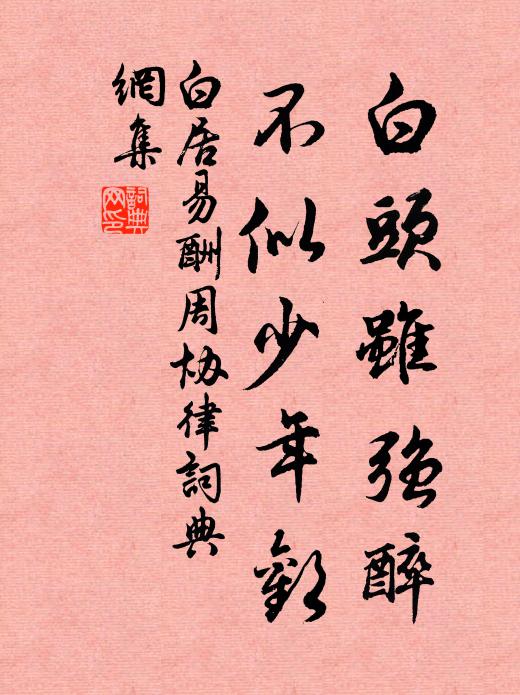 白頭雖強醉
不似少年歡
白居易酬周协律詞典
網集
詞典
网印